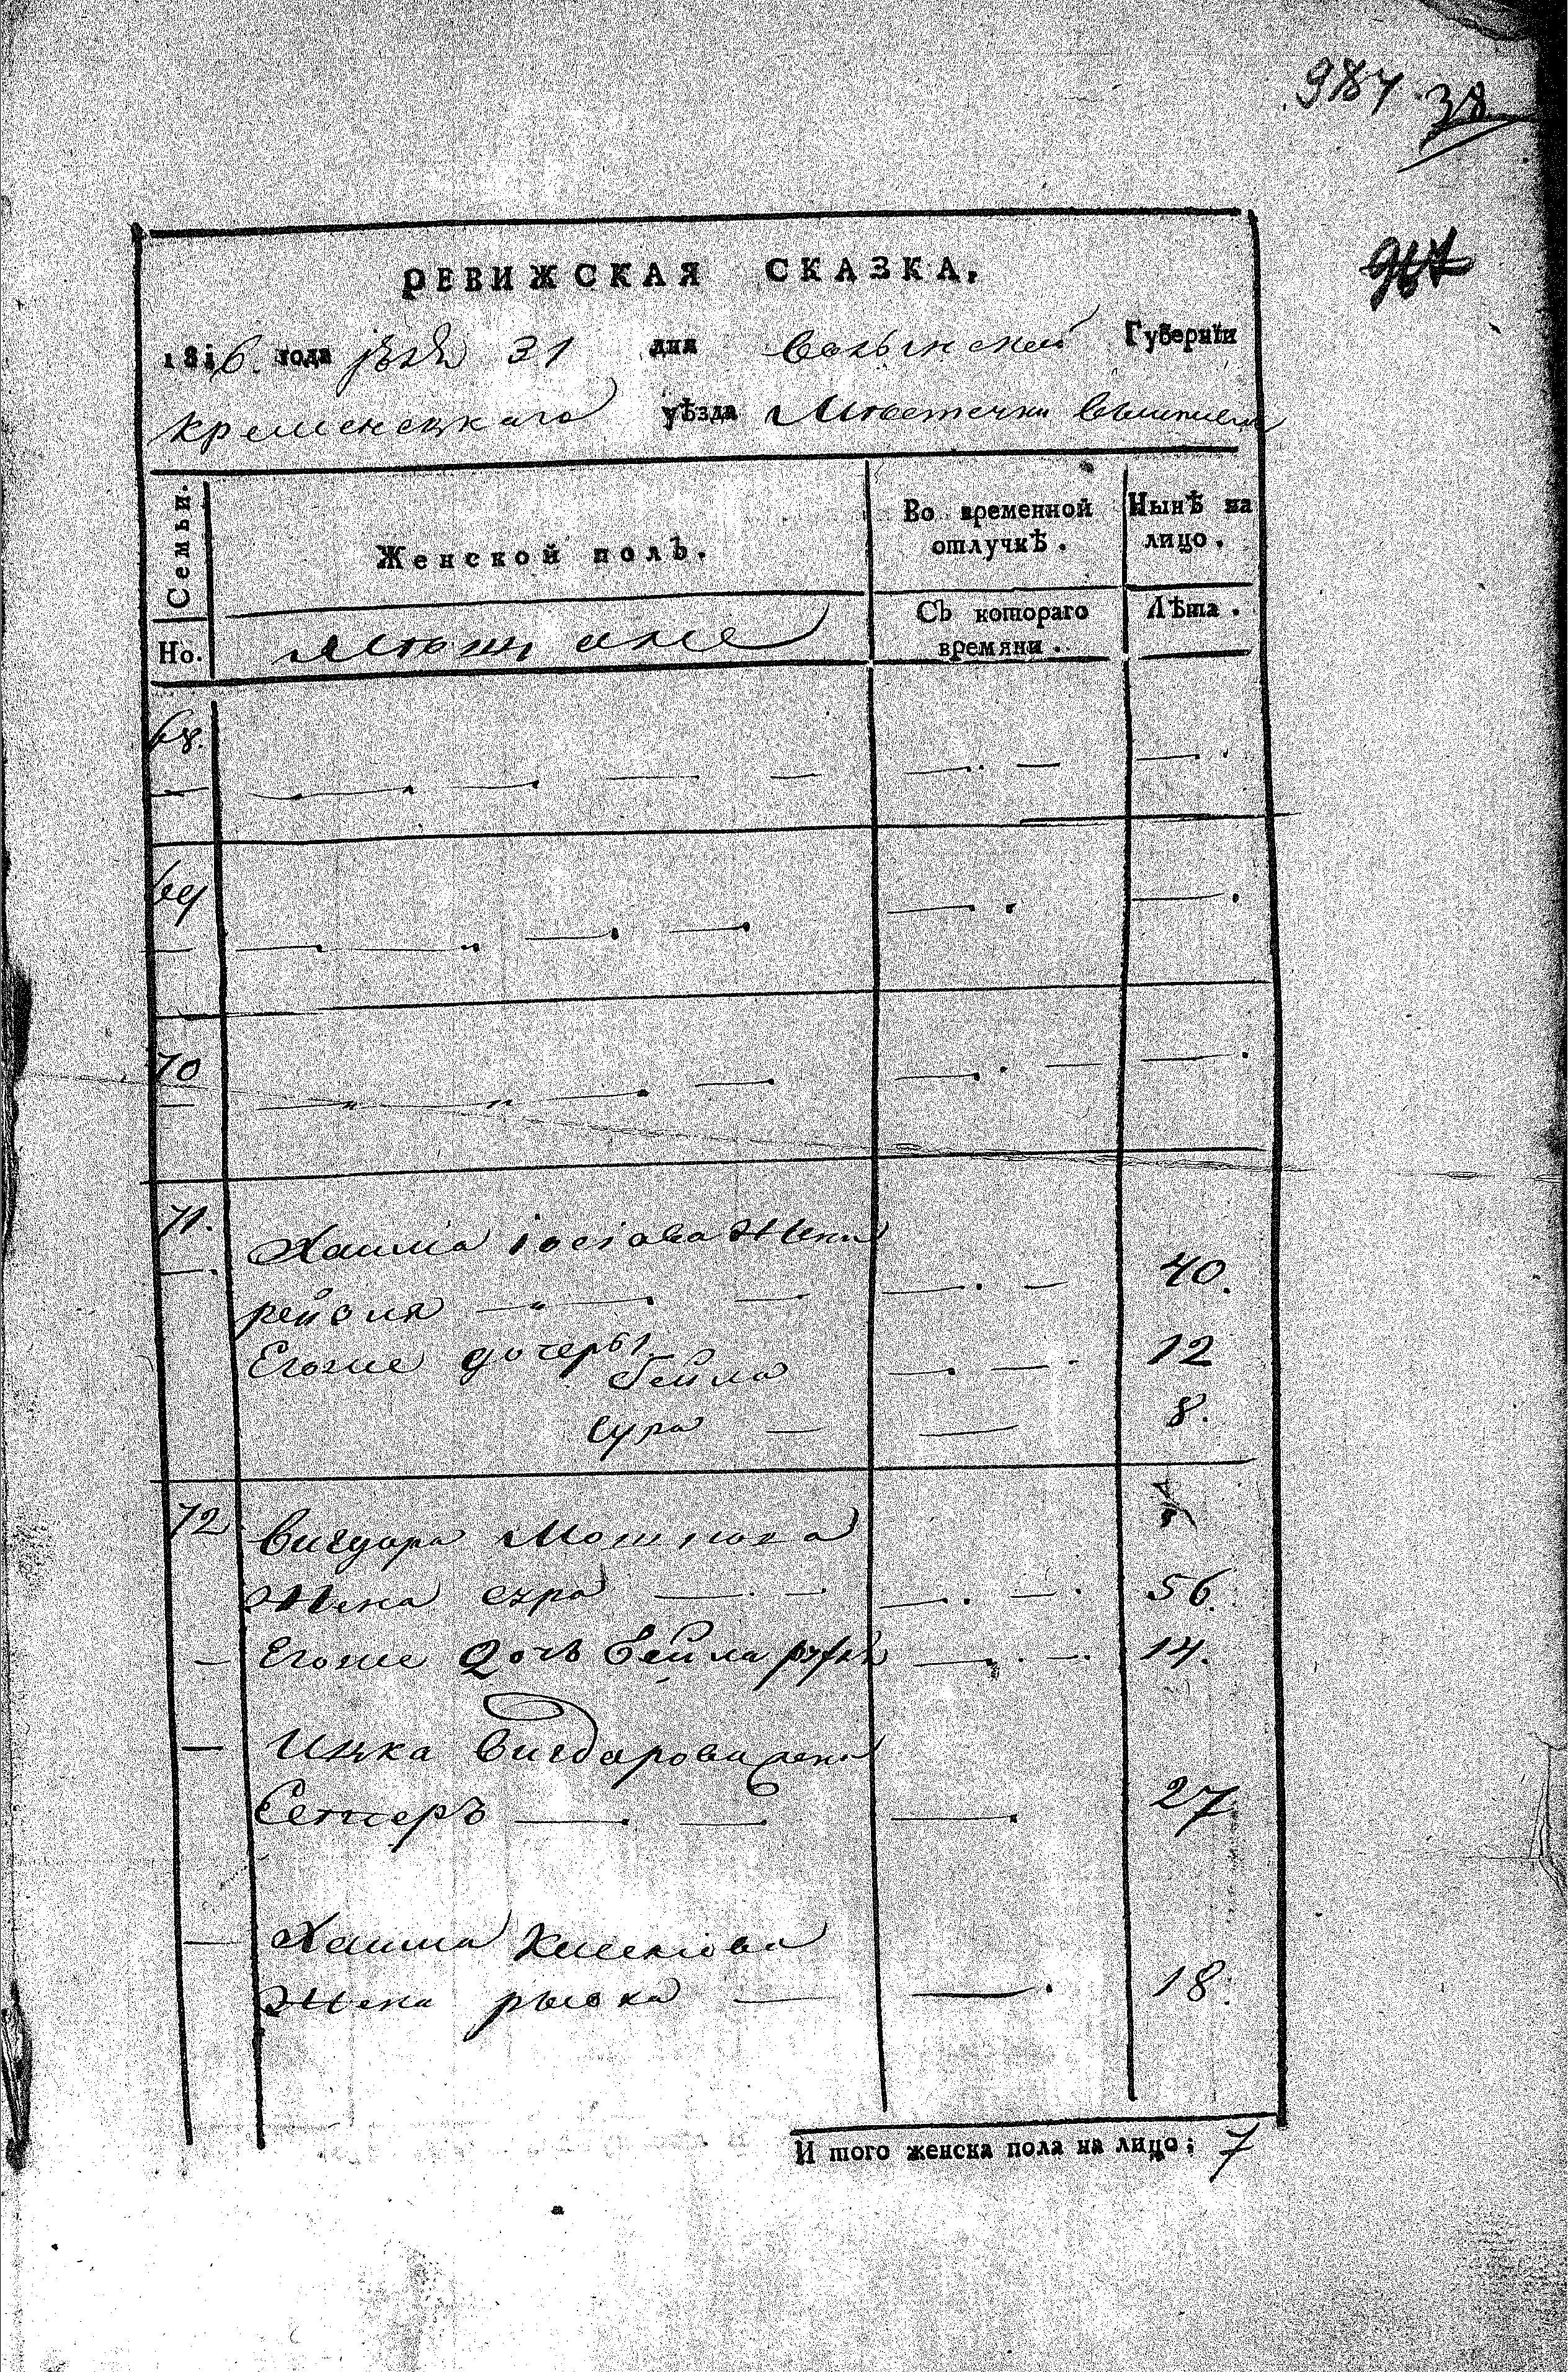 987 38
967
РЕВИЖСКАЯ СКАЗКА,
1816. года 31 дня волынской Губерніи
кременецкаго уѣзда Мѣстечки
Семьи.
Женской полъ.
Во временной отлучкѣ.
Нынѣ на лицо.
Но.
Мѣщане
Съ котораго времяни.
Лѣта.
68.
69
70
71.
Хаима іосіова жена
рейзля 40.
Егоже дочеры
Бейла 12
Сура 8.
72
Вигдора Мошкова
жена сура 56.
Егоже Дочь бейла 14.
Ицка Вигдорова жена
Естеръ 27
Хаима
жена рывка 18.
И того женска пола на лицо: 7